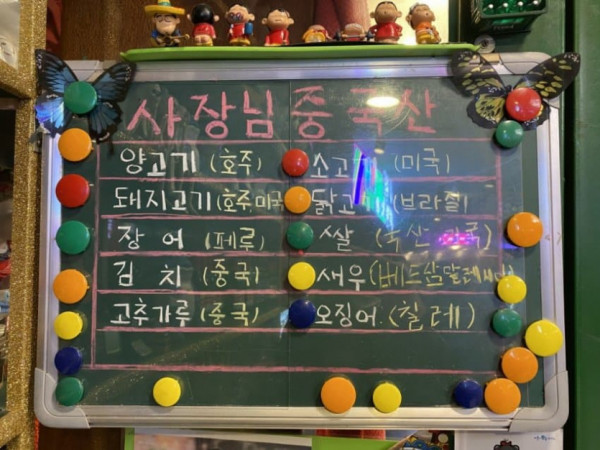 사장님 중국산
양고기 (호주) 소고기 (미국)
돼지고기 (호주,미국 닭고 (브라질)
장어 (페루) 쌀 (국산
김치 (중국) 새우 (베트남 말레
고추가루 (중국) 오징어 (칠레)